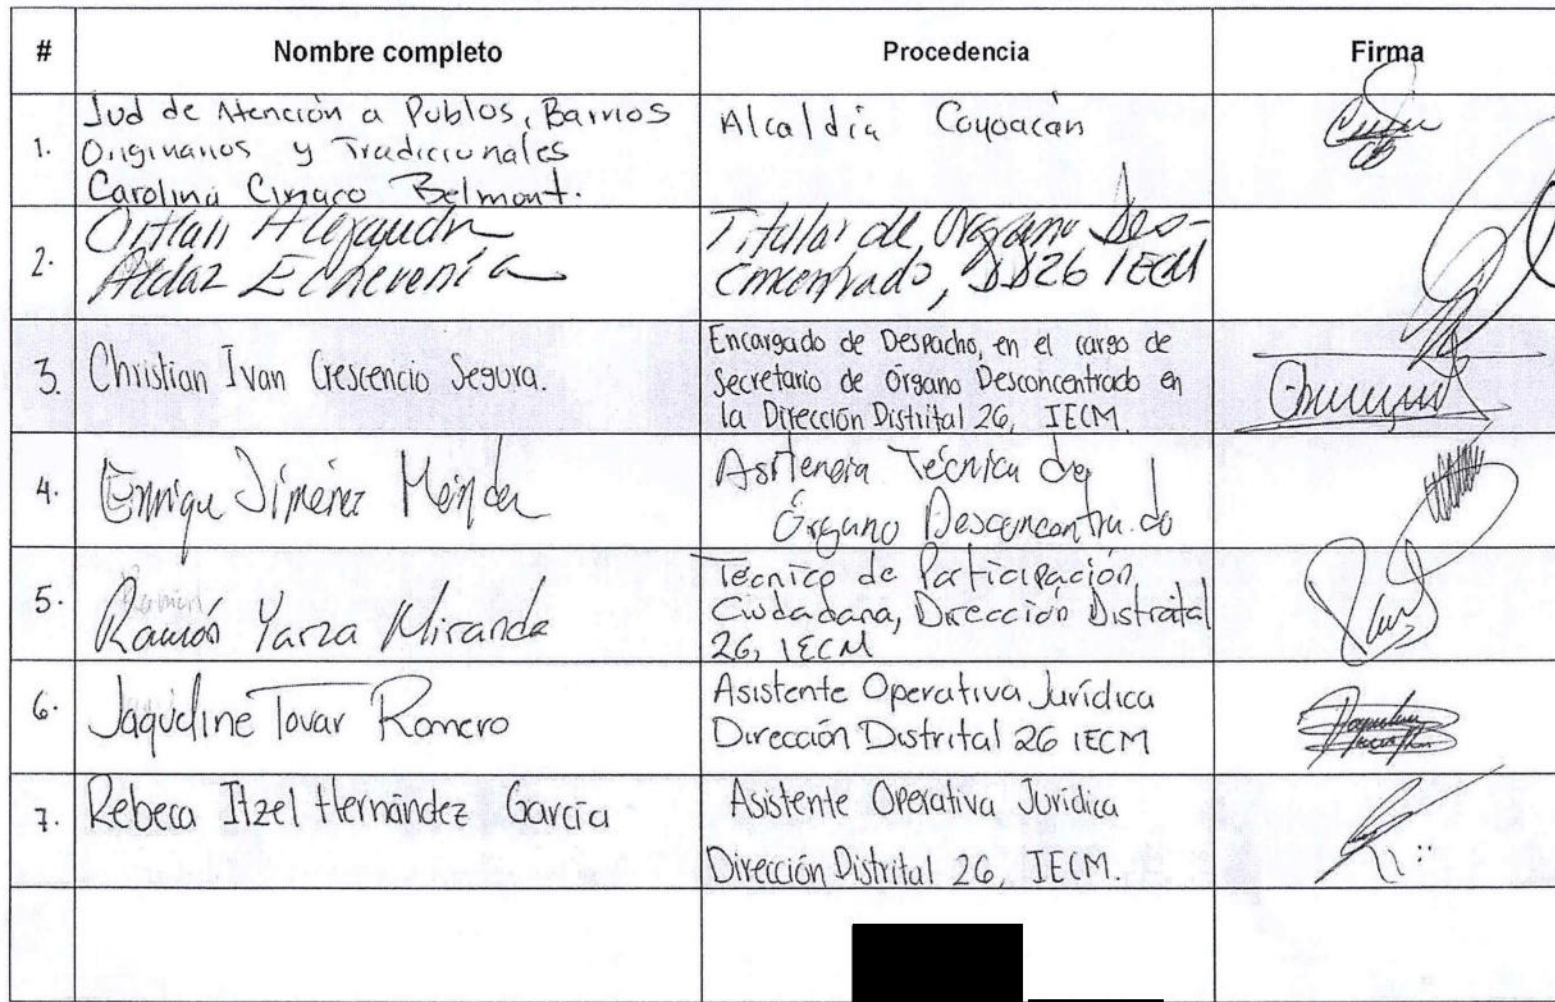 # Nombre completo Procedencia Firma
1. Jud de Atención a Publos, Barrios
Originarios y Tradicionales
Carolina Cimaco Belmont.
Alcaldía Coyoacán
2.
Aldaz Echeverría
Titular de Órgano Des-
concentrado, DD26 IECM
3. Christian Ivan Crescencio Segura.
Encargado de Despacho, en el cargo de
Secretario de Órgano Desconcentrado en
la Dirección Distrital 26, IECM.
4. Enrique Jiménez
Técnica de
Órgano Desconcentrado
5. Ramón Yarza Miranda
Técnico de Participación
Ciudadana, Dirección Distrital
26, IECM
6. Jaqueline Tovar Romero
Asistente Operativa Jurídica
Dirección Distrital 26 IECM
7. Rebeca Itzel Hernández García
Asistente Operativa Jurídica
Dirección Distrital 26, IECM.